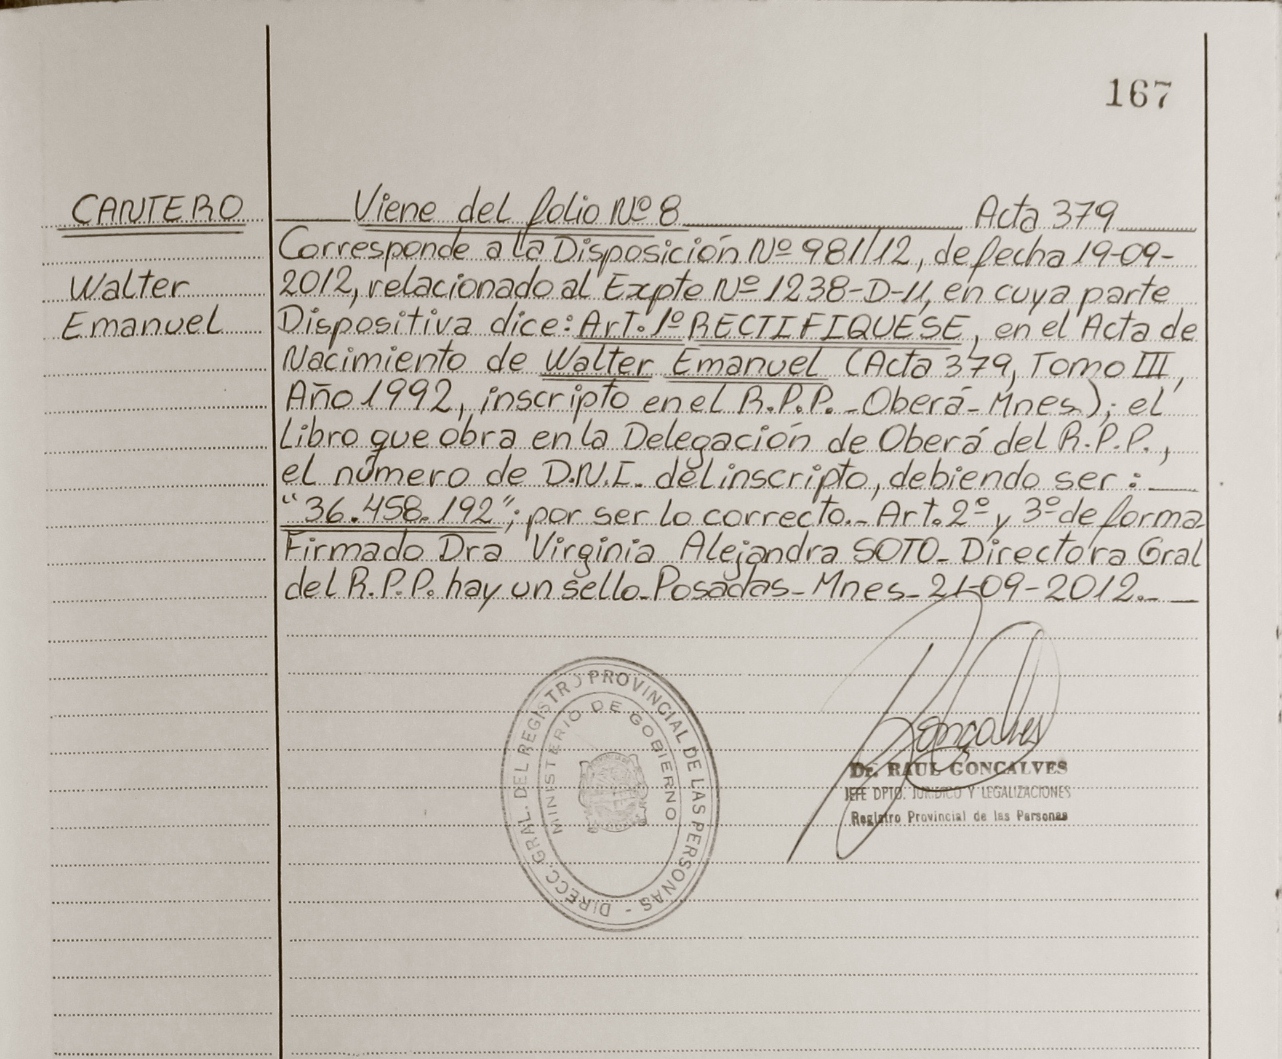 167
CANTERO
Walter
Emanuel
Viene del folio Nº 8 Acta 379
Corresponde a la Disposición Nº 981/12, de fecha 19-09-
2012, relacionado al Expte Nº 1238-D-11, en cuya parte
Dispositiva dice: Art. 1º RECTIFIQUESE, en el Acta de
Nacimiento de Walter Emanuel (Acta 379, Tomo III,
Año 1992, inscripto en el R.P.P. - Oberá - Mnes); el
Libro que obra en la Delegación de Oberá del R.P.P.,
el número de D.N.I. del inscripto, debiendo ser:
"36.458.192"; por ser lo correcto.- Art. 2º y 3º de forma
Firmado Dra Virginia Alejandra SOTO - Directora Gral
del R.P.P. hay un sello - Posadas - Mnes - 21-09-2012.-
DIRECC. GRAL. DEL REGISTRO PROVINCIAL DE LAS PERSONAS -
MINISTERIO DE GOBIERNO
Gonçalves
Dr. RAUL GONCALVES
JEFE DPTO. JURIDICO Y LEGALIZACIONES
Registro Provincial de las Personas